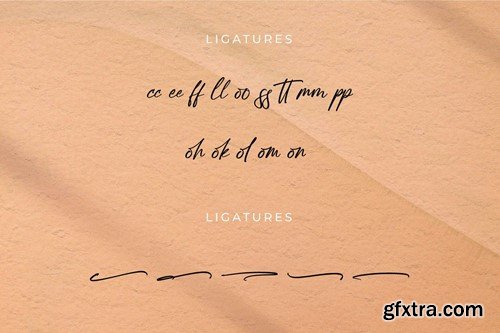 LIGATURES
cc ee ff ll oo ss tt mm pp
oh ok ol om on
LIGATURES
gfxtra.com